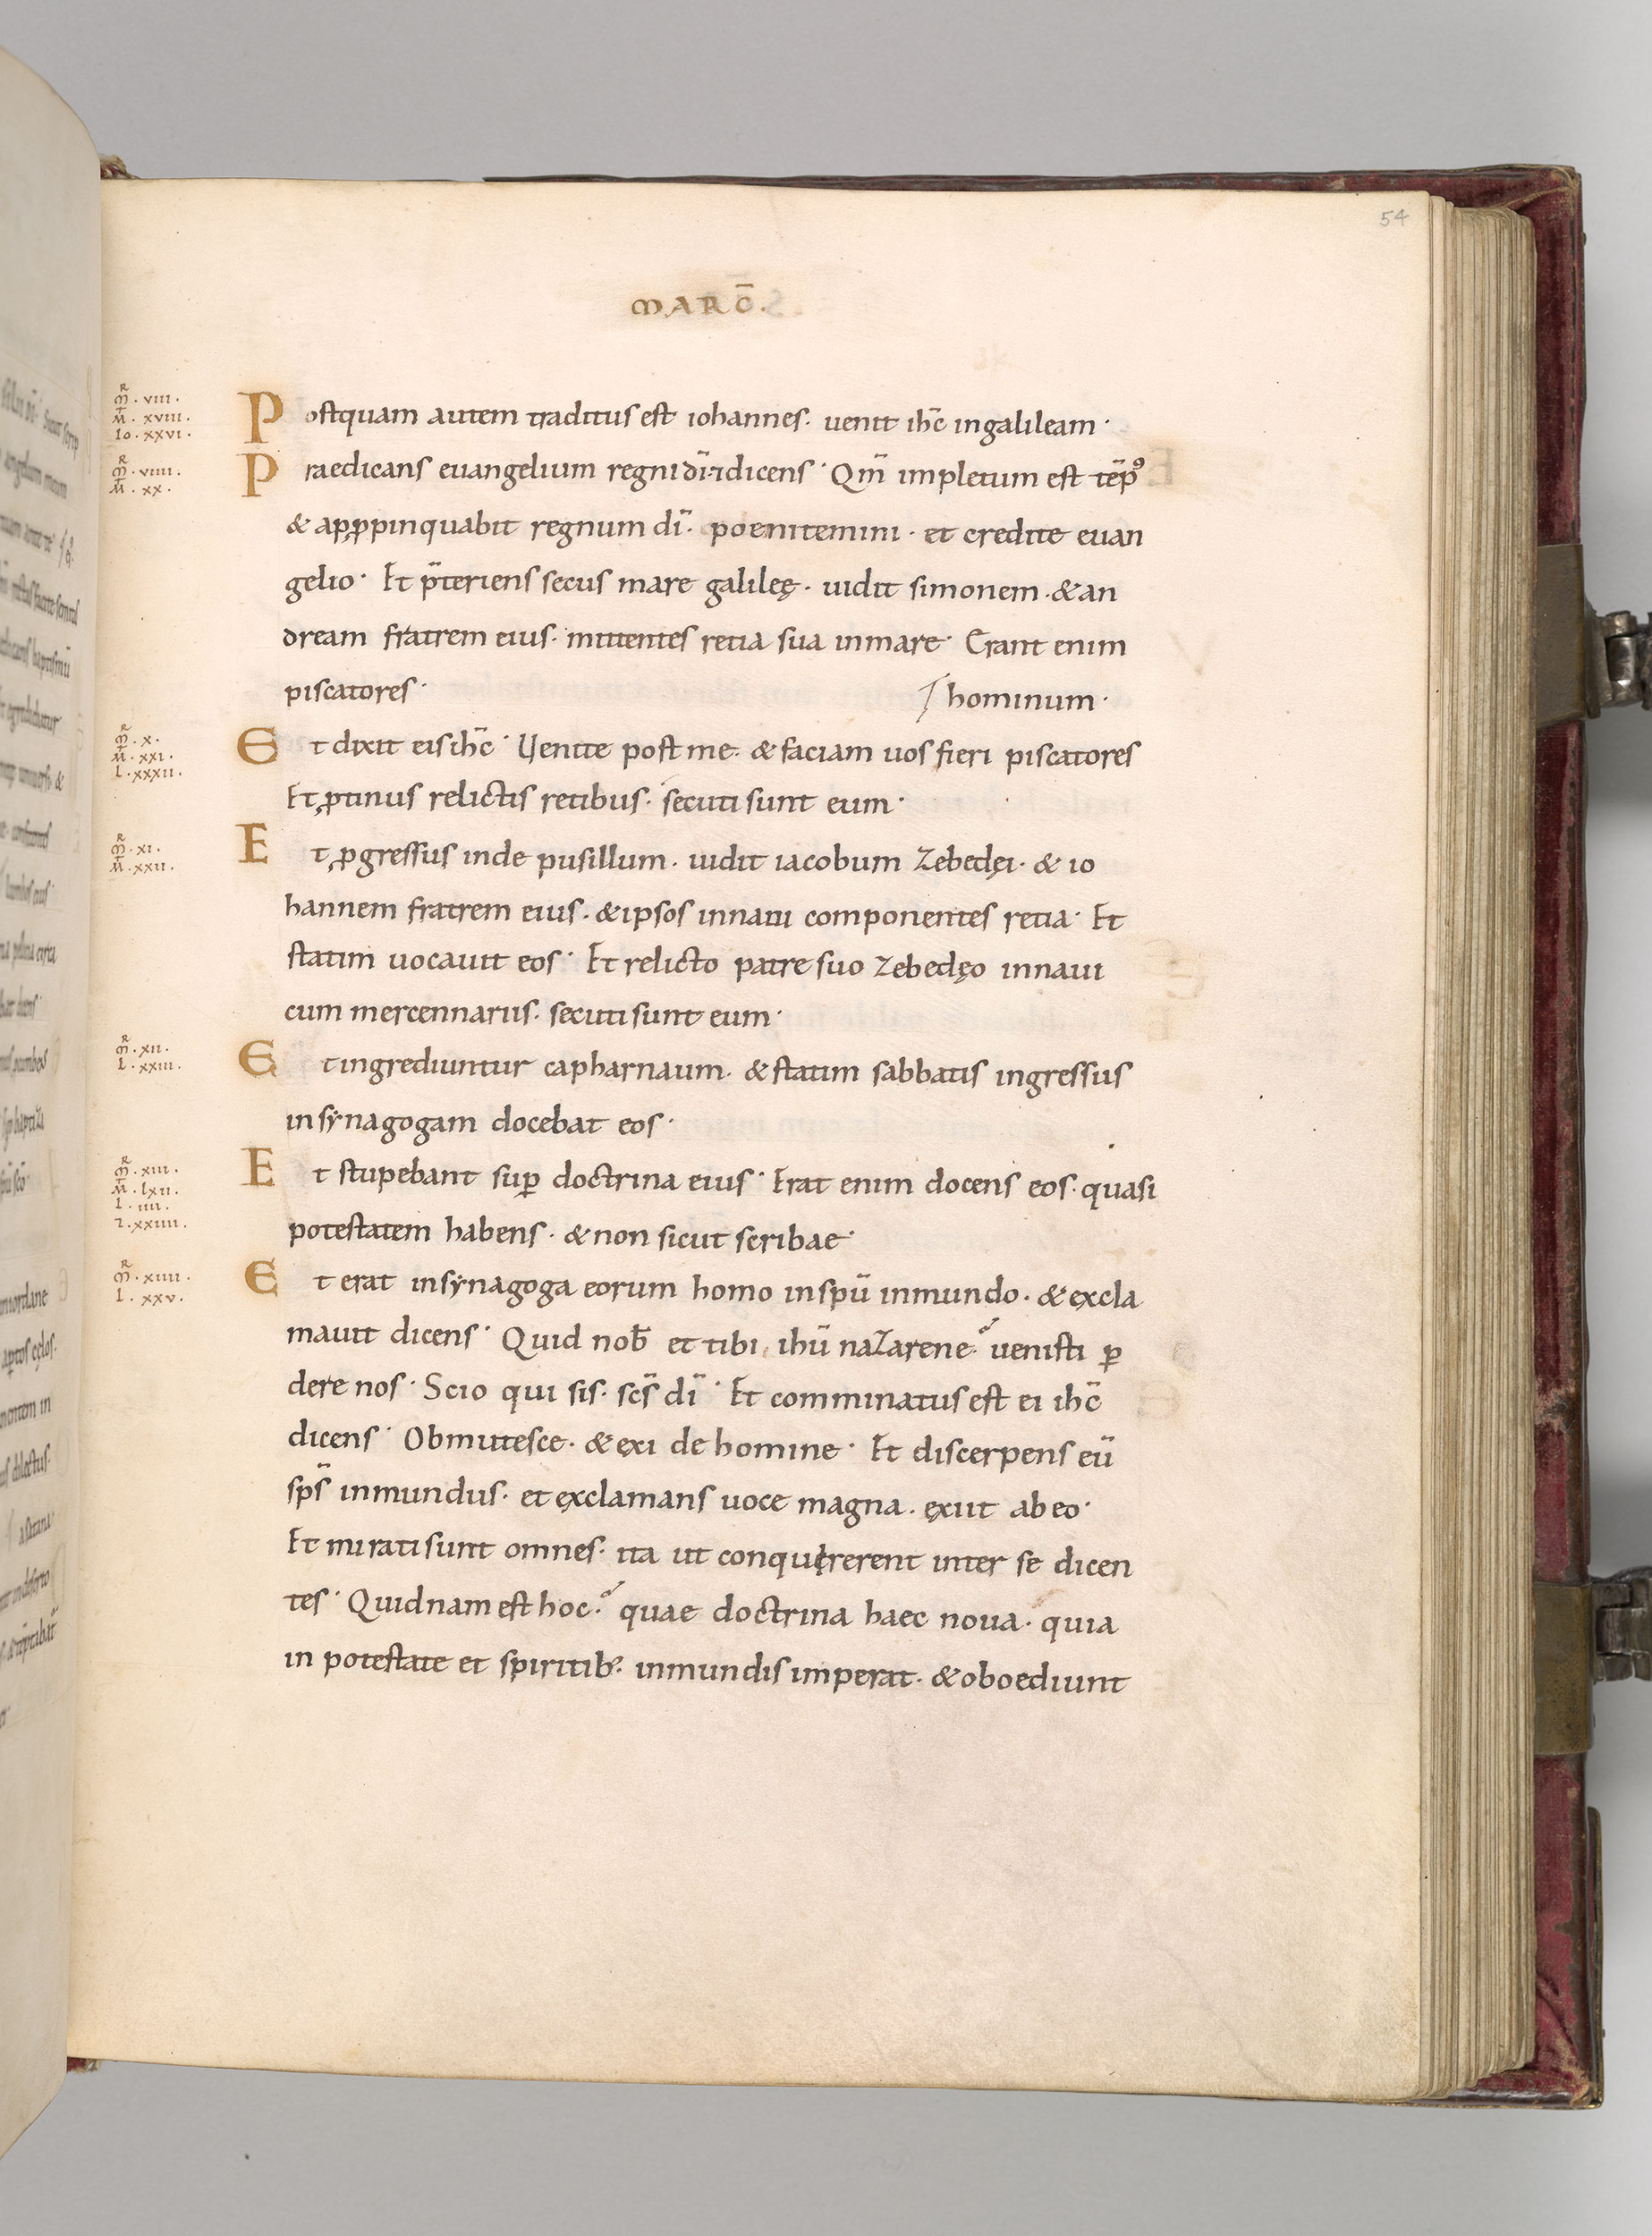 54
MARC̄.
R
M̄ · VIII ·
M̄ · XVIII ·
IO · XXVI ·
Postquam autem traditus est iohannes · uenit ihc̄ ingalileam ·
R
M̄ · VIIII ·
M̄ · XX ·
Praedicans euangelium regni dī · ⁊ dicens · Qm̄ impletum est tēpꝰ
& apꝓpinquabit regnum dī · poenitemini · et credite euan
gelio · Et p̄teriens secus mare galileę · uidit simonem · & an
dream fratrem eius · mittentes retia sua inmare · Erant enim
piscatores ·
hominum ·
R
M̄ · X ·
M̄ · XXI ·
L · XXXII ·
Et dixit eis ihc̄ · Uenite post me · & faciam uos fieri piscatores
Et ꝓtinus relictis retibus · secuti sunt eum ·
R
M̄ · XI ·
M̄ · XXII ·
Et ꝓgressus inde pusillum · uidit iacobum zebedęi · & io
hannem fratrem eius · & ipsos innaui componentes retia · Et
statim uocauit eos · Et relicto patre suo zebedęo innaui
cum mercennariis · secuti sunt eum ·
R
M̄ · XII ·
L · XXIII ·
Et ingrediuntur capharnaum · & statim sabbatis ingressus
in sẏnagogam docebat eos ·
R
M̄ · XIII ·
M̄ · LXII ·
L · IIII ·
2 · XXIIII ·
Et stupebant suꝑ doctrina eius · Erat enim docens eos · quasi
potestatem habens · & non sicut scribae ·
R
M̄ · XIIII ·
L · XXV ·
Et erat insẏnagoga eorum homo inspū inmundo · & excla
mauit dicens · Quid nob̄ et tibi ihū nazarene · uenisti ꝑ
dere nos · Scio qui sis · sc̄s dī · Et comminatus est ei ihc̄
dicens · Obmutesce · & exi de homine · Et discerpens eū
sp̄s inmundus · et exclamans uoce magna · exiit ab eo ·
Et mirati sunt omnes · ita ut conquererent inter se dicen
tes · Quidnam est hoc · quae doctrina haec noua · quia
in potestate et spiritib; inmundis imperat · & oboediunt